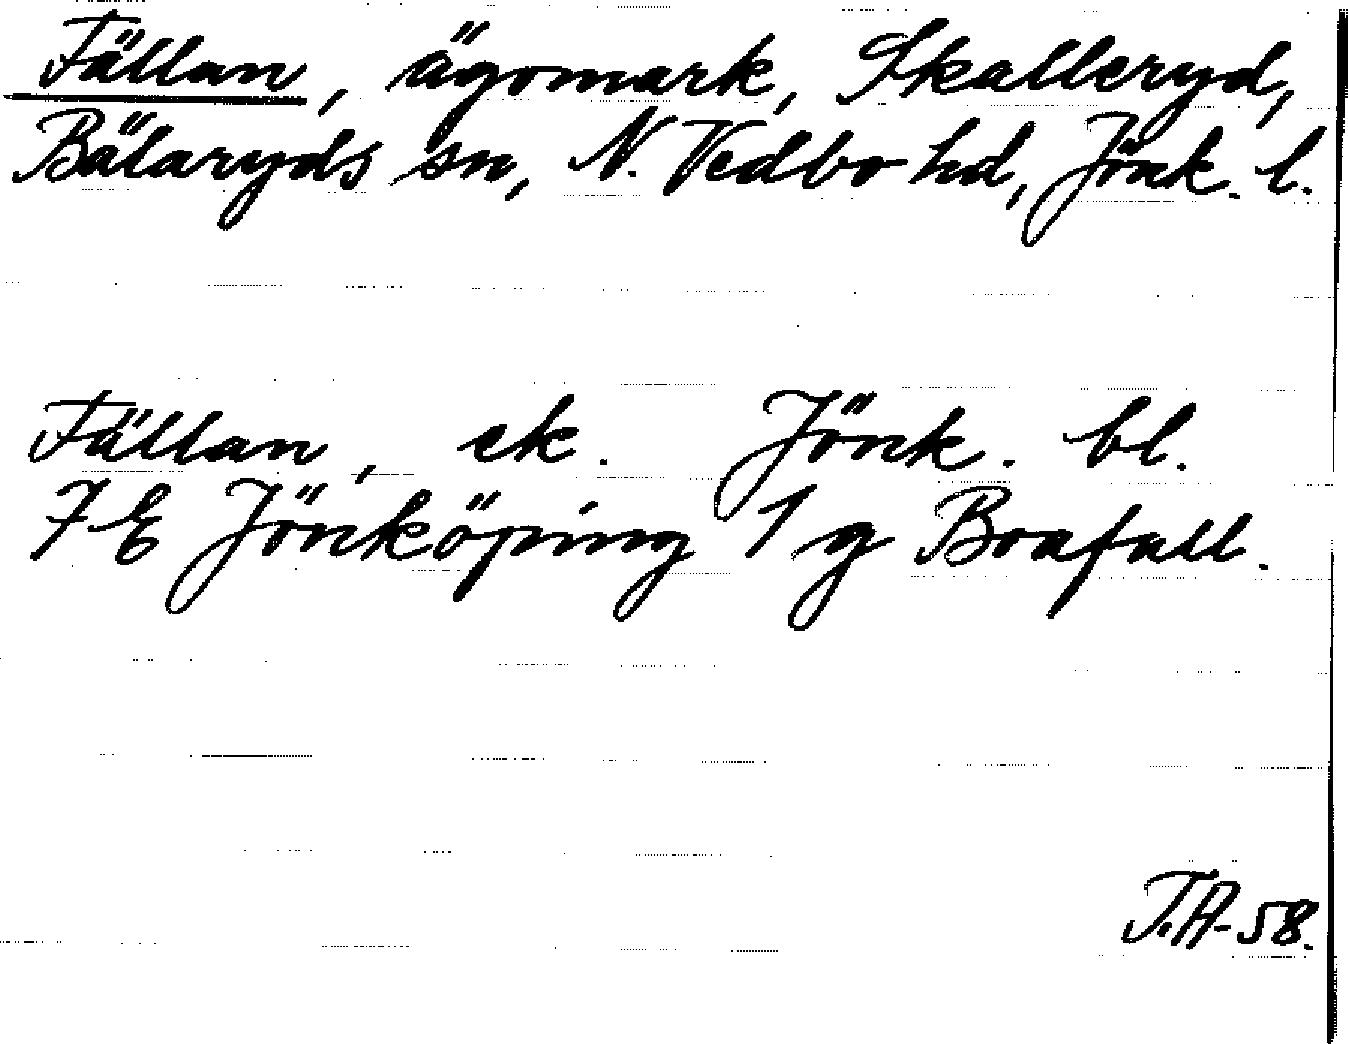 Fällan, ägomark, Skalleryd,
Bälaryds sn, N. Vedbo hd, Jönk. l.
Fällan, ek. Jönk. bl.
7 E Jönköping 1 g Boafall.
T.A-58.